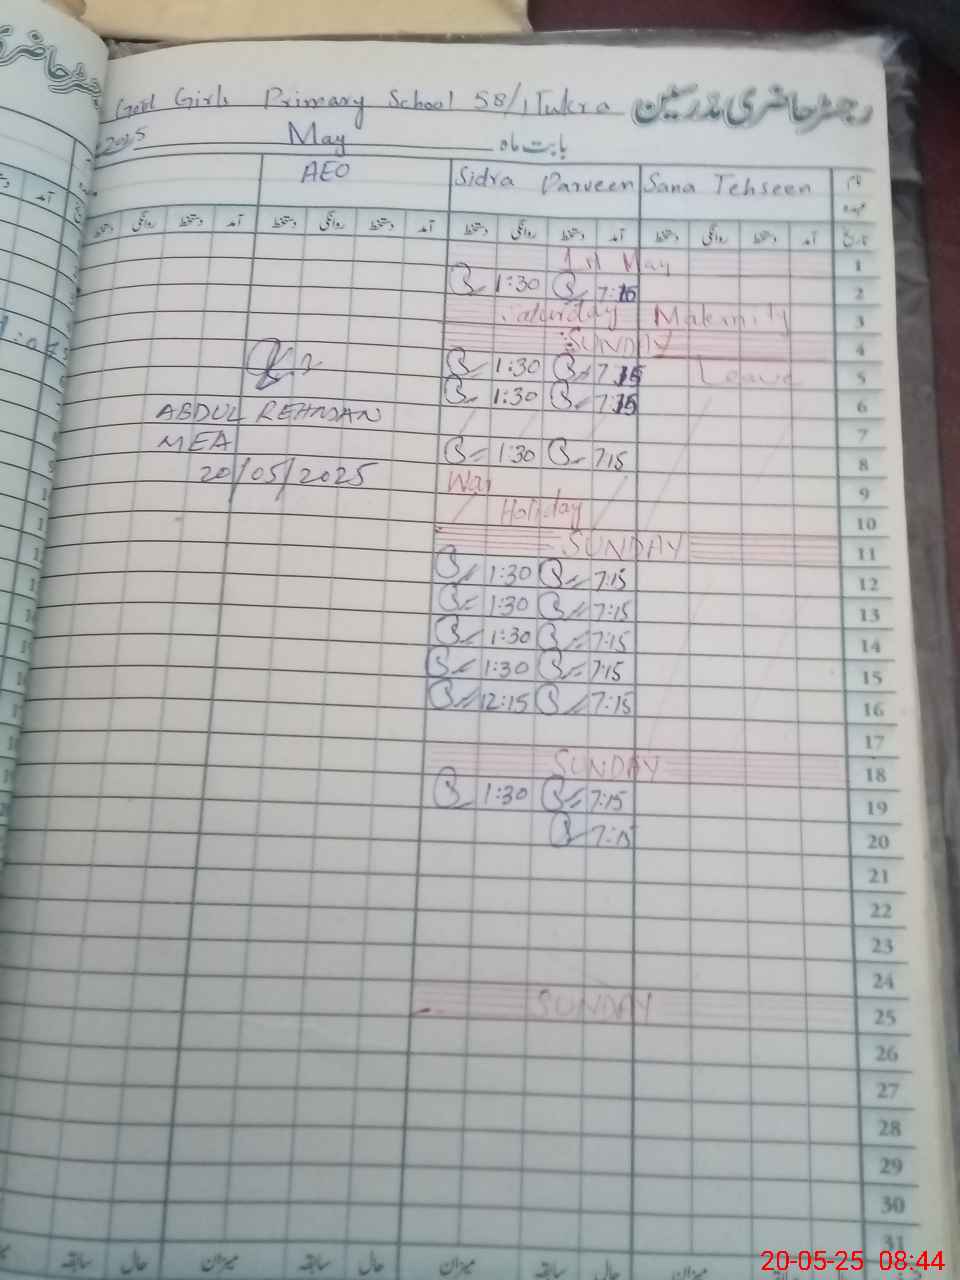 Govt Girls Primary School 58/1 Tukra رجسٹر حاضری مدرسین
2025 May بابت ماہ
AEO Sidra Parveen Sana Tehseen نام
عہدہ
روانگی دستخط آمد دستخط روانگی دستخط آمد دستخط روانگی دستخط آمد دستخط روانگی دستخط آمد تاریخ
1st May 1
1:30 7:15 2
Saturday Maternity 3
SUNDAY 4
1:30 7:15 Leave 5
1:30 7:15 6
ABDUL REHMAN 7
MEA 1:30 7:15 8
20/05/2025 War 9
Holiday 10
SUNDAY 11
1:30 7:15 12
1:30 7:15 13
1:30 7:15 14
1:30 7:15 15
12:15 7:15 16
17
SUNDAY 18
1:30 7:15 19
7:15 20
21
22
23
24
SUNDAY 25
26
27
28
29
30
31
سابقہ حال میزان سابقہ حال میزان سابقہ حال میزان
20-05-25 08:44